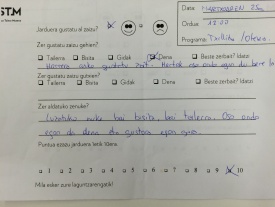 STM
Data: MARTXOAREN 25a
Ordua: 12:00
Programa: Txillida /
Jarduera gustatu al zaizu?
Zer gustatu zaizu gehien?
Tailerra Bisita Gidak Dena Beste zerbait? Idatzi
Zer gustatu zaizu gutxien?
Tailerra Bisita Gidak Dena Beste zerbait? Idatzi
Zer aldatuko zenuke?
Luzatuko nuke bai bisita, bai tailerra. Oso ondo
egon da dena eta gustora egon gara.
Puntua ezazu jarduera letik 10era
1 2 3 4 5 6 7 8 9 10
Mila esker zure laguntzarengatik!